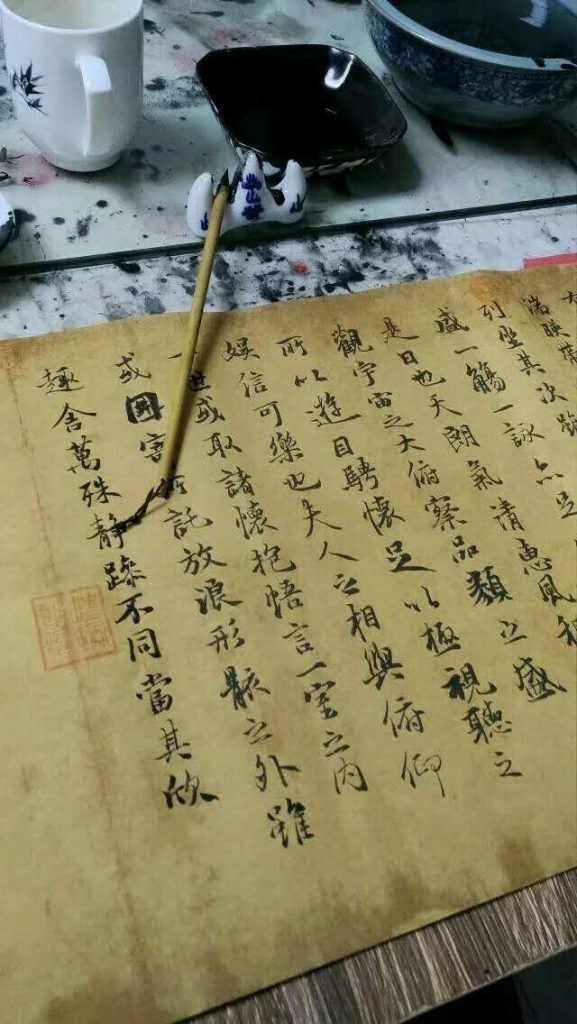 湍暎帶
列坐其次
盛一觴一詠亦足
是日也天朗氣清惠風和
觀宇宙之大俯察品類之盛
所以遊目騁懷足以極視聽之
娛信可樂也夫人之相與俯仰
一世或取諸懷抱悟言一室之內
或因寄所託放浪形骸之外雖
趣舍萬殊静躁不同當其欣